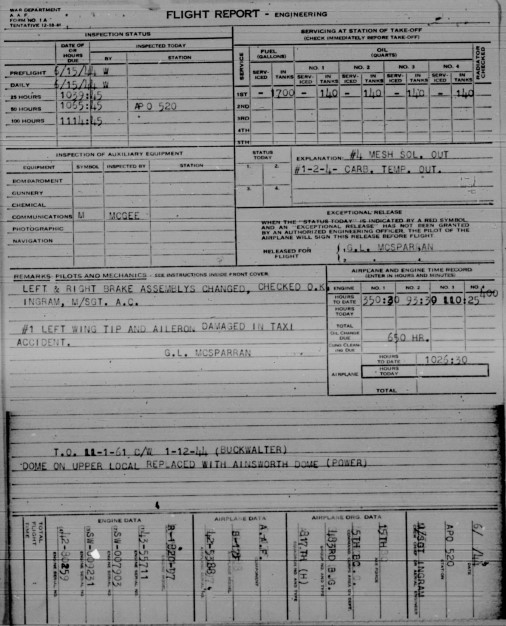 WAR DEPARTMENT
A. A. F.
FORM NO. 1A
FLIGHT REPORT - ENGINEERING
INSPECTION STATUS
SERVICING AT STATION OF TAKE-OFF
(CHECK IMMEDIATELY BEFORE TAKE-OFF)
DATE OF OR HOURS DUE INSPECTED TODAY BY STATION
SERVICE FUEL (GALLONS) OIL (QUARTS) RADIATOR CHECKED
NO. 1 NO. 2 NO. 3 NO. 4
SERV-ICED IN TANKS SERV-ICED IN TANKS SERV-ICED IN TANKS SERV-ICED IN TANKS SERV-ICED IN TANKS
PREFLIGHT 6/15/44 W
DAILY 6/15/44 W
25 HOURS 1039:45
50 HOURS 1065:45 APO 520
100 HOURS 1114:45
1ST - 1700 - 140 - 140 - 140 - 140
2ND
3RD
4TH
5TH
INSPECTION OF AUXILIARY EQUIPMENT
EQUIPMENT SYMBOL INSPECTED BY STATION
BOMBARDMENT
GUNNERY
CHEMICAL
COMMUNICATIONS M MCGEE
PHOTOGRAPHIC
NAVIGATION
STATUS TODAY
1. 2.
3. 4.
EXPLANATION #4 MESH SOL. OUT
#1-2-4- CARB. TEMP. OUT.
EXCEPTIONAL RELEASE
WHEN THE "STATUS TODAY" IS INDICATED BY A RED SYMBOL
AND AN "EXCEPTIONAL RELEASE" HAS NOT BEEN GRANTED
BY AN AUTHORIZED ENGINEERING OFFICER, THE PILOT OF THE
AIRPLANE WILL SIGN THIS RELEASE BEFORE FLIGHT.
RELEASED FOR FLIGHT G.L. MCSPARRAN
REMARKS: PILOTS AND MECHANICS - SEE INSTRUCTIONS INSIDE FRONT COVER.
LEFT & RIGHT BRAKE ASSEMBLYS CHANGED, CHECKED O.K.
INGRAM, M/SGT. A.C.
#1 LEFT WING TIP AND AILERON DAMAGED IN TAXI
ACCIDENT.
G.L. MCSPARRAN
AIRPLANE AND ENGINE TIME RECORD
(ENTER IN HOURS AND MINUTES)
ENGINE NO. 1 NO. 2 NO. 3 NO. 4
HOURS TO DATE 350:30 93:30 110:25 400
HOURS TODAY
TOTAL
OIL CHANGE DUE 650 HR.
AIRPLANE HOURS TO DATE 1026:30
HOURS TODAY
TOTAL
T.O. 11-1-61 C/W 1-12-44 (BUCKWALTER)
DOME ON UPPER LOCAL REPLACED WITH AINSWORTH DOME (POWER)
TOTAL FLIGHT TIME
ENGINE DATA
SW-009231
SW-007903
43-55711
R-1820-97
AIRPLANE DATA
A.A.F.
AIRPLANE ORG. DATA
817TH (H)
483RD B.G.
15TH
APO 520
STATION
DATE